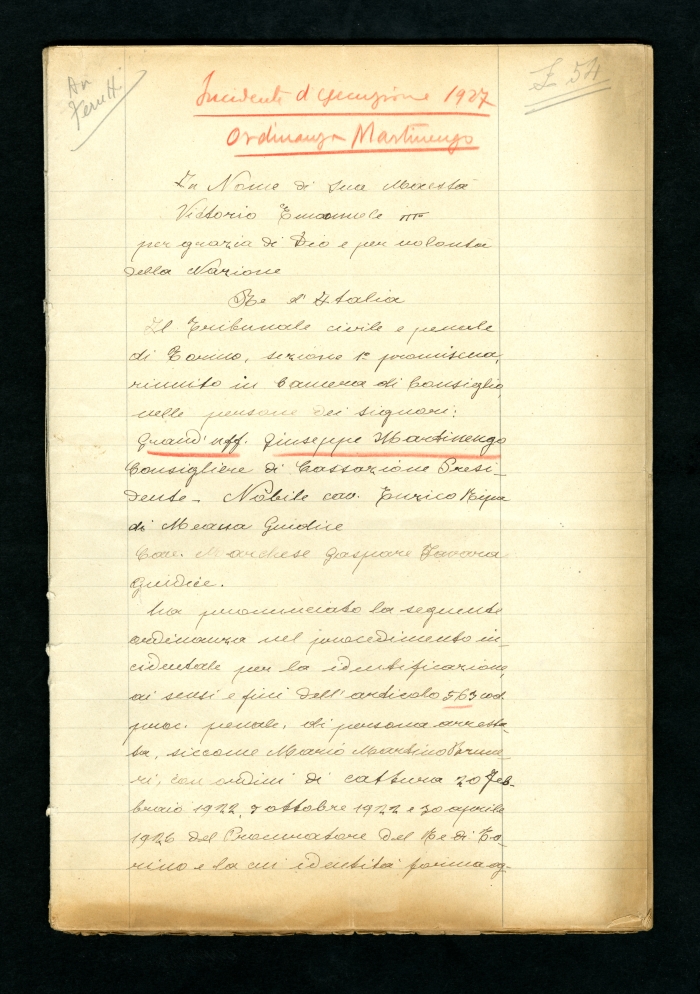 Incidente d'esecuzione 1927
Ordinanza Martinengo
£ 54
In Nome di Sua Maestà
Vittorio Emanuele III
per grazia di Dio e per volontà
della Nazione
Re d'Italia
Il Tribunale civile e penale
di Torino, sezione 1ª promiscua,
riunito in Camera di Consiglio,
nelle persone dei signori:
Grand'uff. Giuseppe Martinengo
Consigliere di Cassazione Presi-
dente - Nobile cav. Enrico Ripa
di Meana Giudice
Cav. Marchese Gaspare Favara
giudice.
ha pronunciato la seguente
ordinanza nel procedimento in-
cidentale per la identificazione,
ai sensi e fini dell'articolo 563 cod.
proc. penale, di persona arresta-
ta, siccome Mario Martino Brune-
ri, con ordini di cattura 20 Feb-
braio 1922, 7 ottobre 1922 e 30 aprile
1926 del Procuratore del Re di To-
rino e la cui identità forma og-